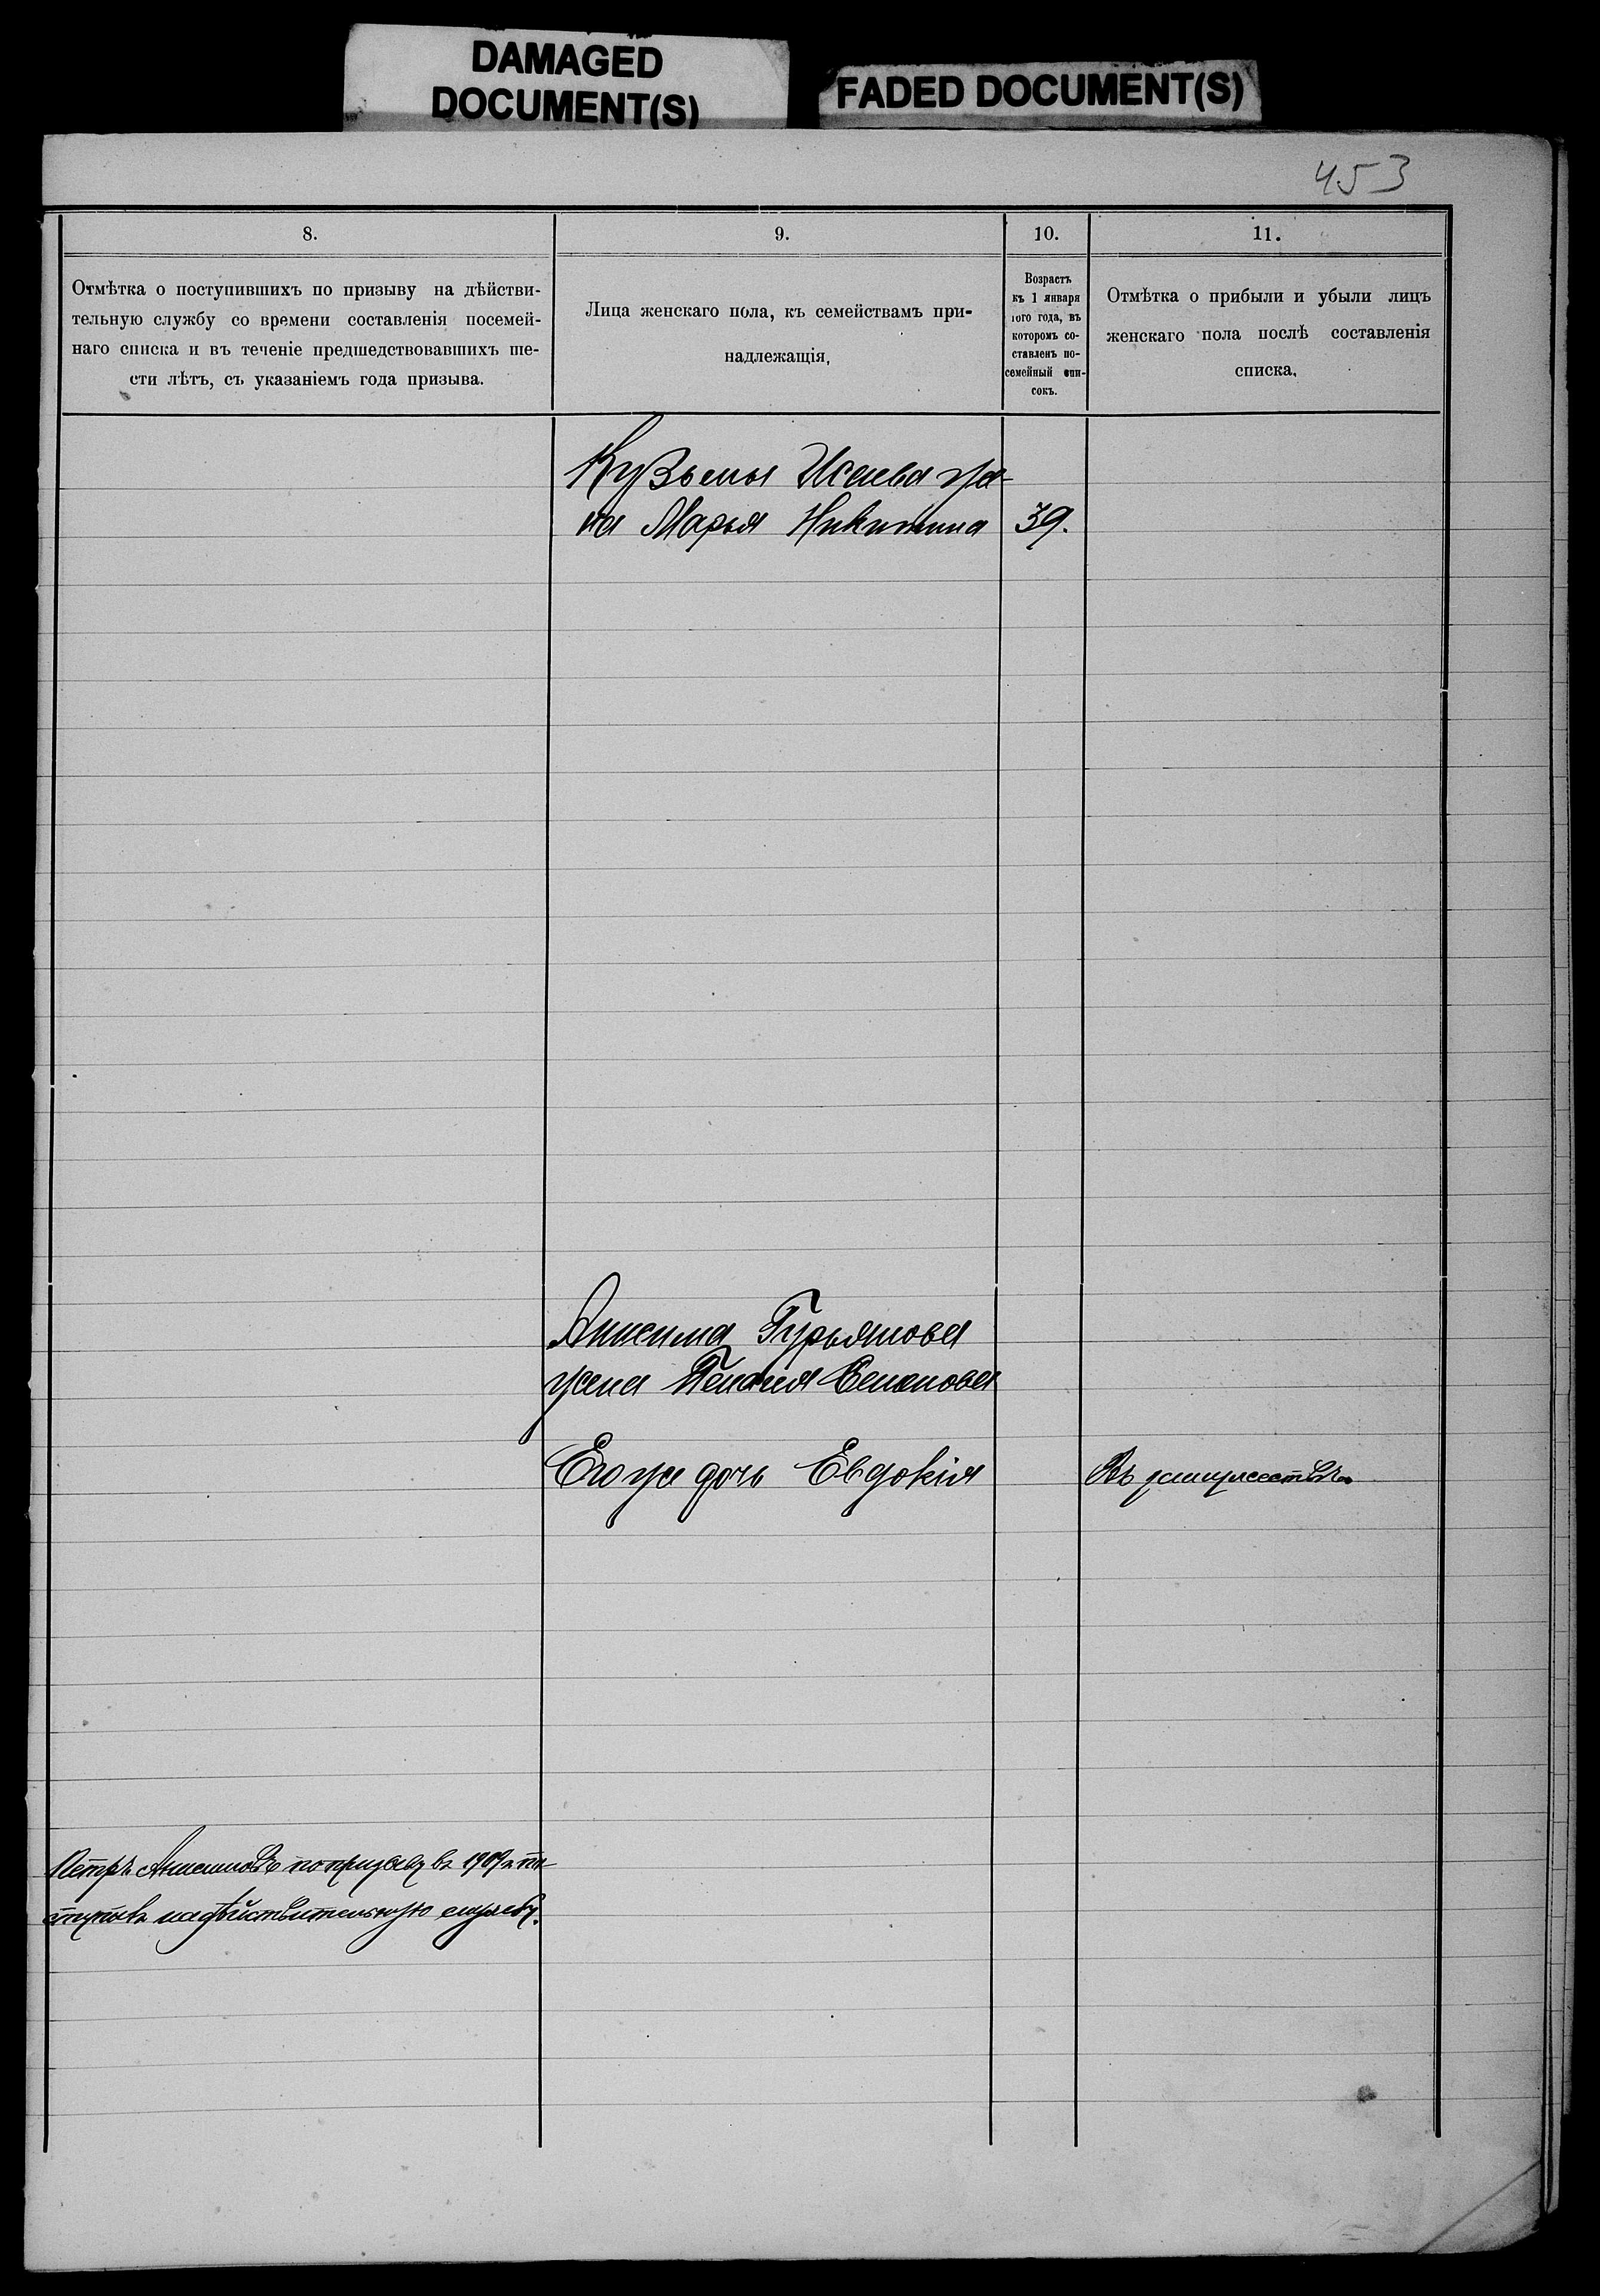 DAMAGED
DOCUMENT(S)
FADED DOCUMENT(S)
453
8.
9.
10.
11.
Отмѣтка о поступившихъ по призыву на дѣйстви-
тельную службу со времени составленія посемей-
наго списка и въ теченіе предшедствовавшихъ ше-
сти лѣтъ, съ указаніемъ года призыва.
Лица женскаго пола, къ семействамъ при-
надлежащія,
Возрастъ
къ 1 января
того года, въ
которомъ со-
ставленъ по-
семейный спи-
сокъ.
Отмѣтка о прибыли и убыли лицъ
женскаго пола послѣ составленія
списка,
Кузьмы Исаева же-
на Марья Никитина 39.
Анисима Гурьянова
жена Пелагея Семенова
Его же дочь Евдокія
Въ замужествѣ
Петръ Анисимовъ по призыву въ 1909 г. по-
ступилъ на дѣйствительную службу.